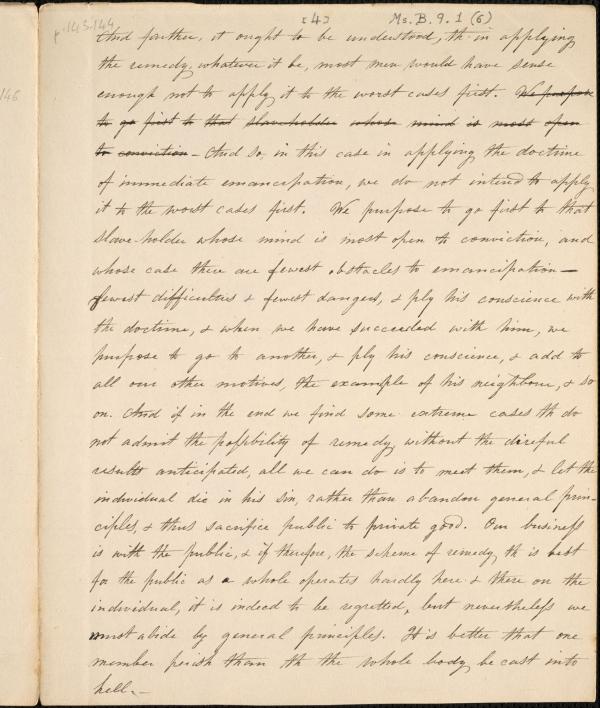 p. 143-144
[4] Ms. B. 9. 1 (6)
146
And further, it ought to be understood, th. in applying
the remedy, whatever it be, most men would have sense
enough not to apply it to the worst cases first. We purpose
to go first to that slaveholder whose mind is most open
to conviction - And so, in this case in applying the doctrine
of immediate emancipation, we do not intend to apply
it to the worst cases first. We purpose to go first to that
slave-holder whose mind is most open to conviction, and
whose case there are fewest obstacles to emancipation—
fewest difficulties & fewest dangers, & ply his conscience with
the doctrine, & when we have succeeded with him, we
purpose to go to another, & ply his conscience, & add to
all our other motives, the example of his neighbour, & so
on. And if in the end we find some extreme cases th do
not admit the possibility of remedy, without the direful
results anticipated, all we can do is to meet them, & let the
individual die in his sin, rather than abandon general prin-
ciples, & thus sacrifice public to private good. Our business
is with the public, & if therefore, the scheme of remedy th is best
for the public as a whole operates hardly here & there on the
individual, it is indeed to be regretted, but nevertheless we
must abide by general principles. It is better that one
member perish than th the whole body be cast into
hell.—